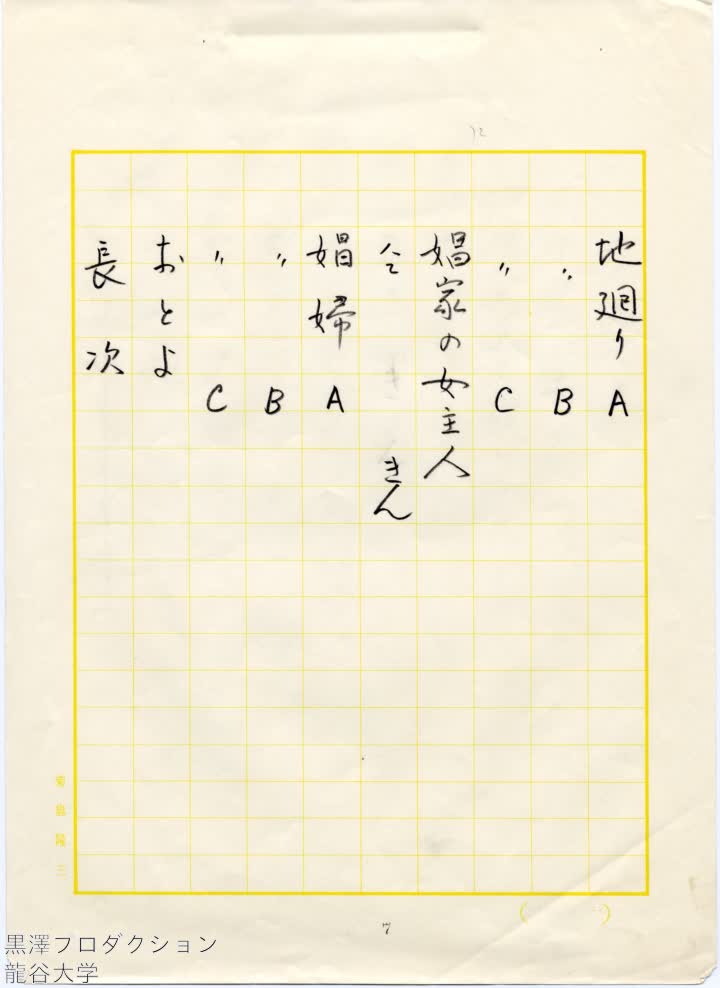 地廻り A
〃 B
〃 C
娼家の女主人
仝 きん
娼婦 A
〃 B
〃 C
おとよ
長次
菊島隆三
7
黒澤フロダクション
龍谷大学